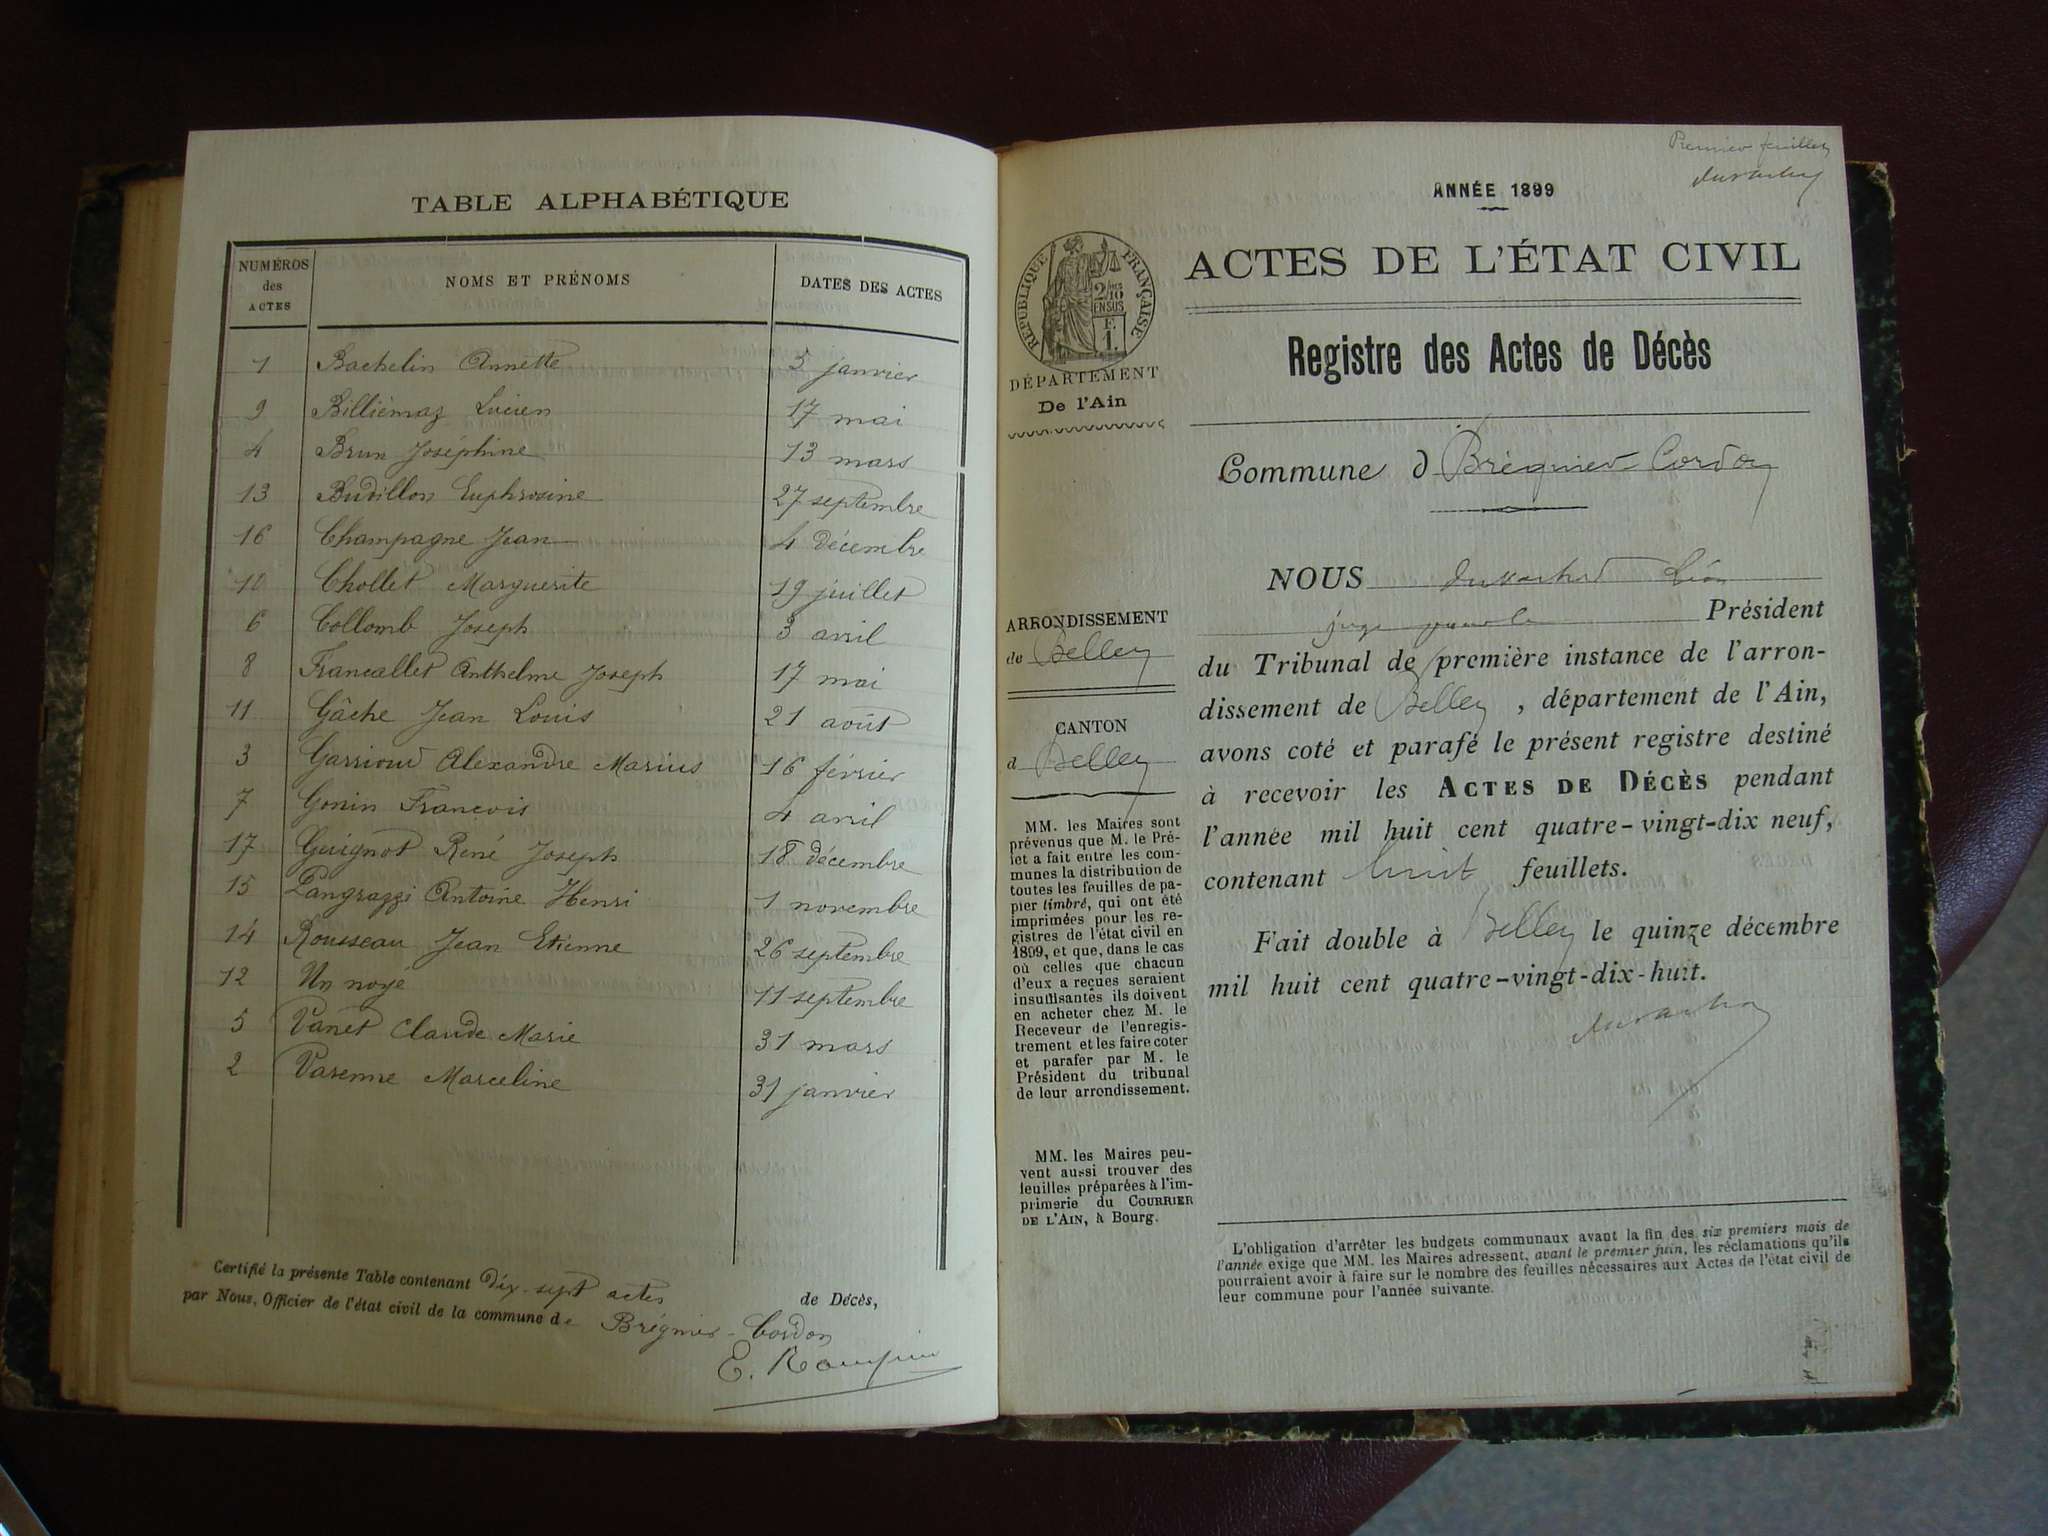 TABLE ALPHABÉTIQUE
NUMÉROS des ACTES NOMS ET PRÉNOMS DATES DES ACTES
1 Bachelin Annette 5 janvier
9 Billiémaz Lucien 17 mai
4 Brun Joséphine 13 mars
13 Budillon Euphrosine 27 septembre
16 Champagne Jean 4 décembre
10 Chollet Marguerite 19 juillet
6 Collomb Joseph 3 avril
8 Francallet Anthelme Joseph 17 mai
11 Gâche Jean Louis 21 août
3 Garrioud Alexandre Marius 16 février
7 Gonin Francois 4 avril
17 Guignot René Joseph 18 décembre
15 Pangrazzi Antoine Henri 1 novembre
14 Rousseau Jean Etienne 26 septembre
12 Un noyé 11 septembre
5 Vanet Claude Marie 31 mars
2 Varenne Marceline 31 janvier
Certifié la présente Table contenant dix-sept actes de Décès,
par Nous, Officier de l'état civil de la commune de Brégnier-Cordon
E.
Premier feuillet
ANNÉE 1899
ACTES DE L'ÉTAT CIVIL
RÉPUBLIQUE FRANÇAISE
2/10 EN SUS
F. 1.
DÉPARTEMENT
De l'Ain
Registre des Actes de Décès
Commune d Brégnier-Cordon
ARRONDISSEMENT
de Belley
CANTON
d Belley
MM. les Maires sont
prévenus que M. le Pré-
fet a fait entre les com-
munes la distribution de
toutes les feuilles de pa-
pier timbré, qui ont été
imprimées pour les re-
gistres de l'état civil en
1899, et que, dans le cas
où celles que chacun
d'eux a reçues seraient
insuffisantes ils doivent
en acheter chez M. le
Receveur de l'enregis-
trement et les faire coter
et parafer par M. le
Président du tribunal
de leur arrondissement.
MM. les Maires peu-
vent aussi trouver des
feuilles préparées à l'im-
primerie du COURRIER
DE L'AIN, à Bourg.
NOUS Léon
juge pour le Président
du Tribunal de première instance de l'arron-
dissement de Belley, département de l'Ain,
avons coté et parafé le présent registre destiné
à recevoir les ACTES DE DÉCÈS pendant
l'année mil huit cent quatre-vingt-dix neuf,
contenant huit feuillets.
Fait double à Belley le quinze décembre
mil huit cent quatre-vingt-dix-huit.
L'obligation d'arrêter les budgets communaux avant la fin des six premiers mois de
l'année exige que MM. les Maires adressent, avant le premier juin, les réclamations qu'ils
pourraient avoir à faire sur le nombre des feuilles nécessaires aux Actes de l'état civil de
leur commune pour l'année suivante.